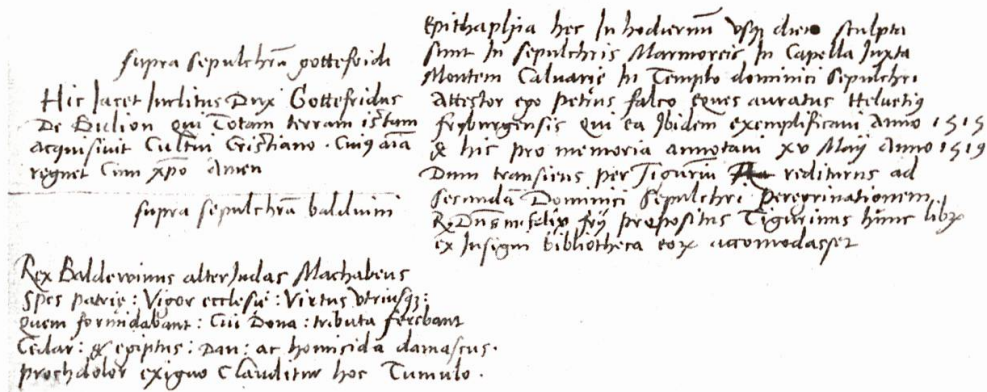 supra sepulchrū gottefridi
Hic Iacet Inclitus Dux Gottefridus
De Bulion qui Totam terram istam
acquisiuit Cultui Cristiano. Cuiꝯ aīa
regnet Cum xp̄o Amen
supra sepulchrū balduini
Rex Baldewinus alter Iudas Machabeus
Spes patrię : Vigor ecclesię : Virtus vtriusqꝫ :
quem formidabant : Cui Dona : tributa ferebant
Cedar : & egiptus : Dan : ac homicida damascus.
proch dolor exiguo Clauditur hoc Tumulo.
Epithaphia hec In hodiernū vsqꝫ diem sculpta
sunt In sepulchris Marmoreis In Capella Iuxta
Montem Caluarię In Templo dominici Sepulchri
Attestor ego petrus falco eques auratus Helvetiꝯ
fryburgensis qui ea Ibidem exemplificaui Anno 1515
& hic pro memoria annotaui xv Maij Anno 1519
Dum transiens per Tigurum rediturus ad
secundā Dominici Sepulchri peregrinationem
R. Dn̄s m. felix fry prepositus Tigurinus hunc librꝫ
ex Insigni bibliotheca eoꝝ accomodasset